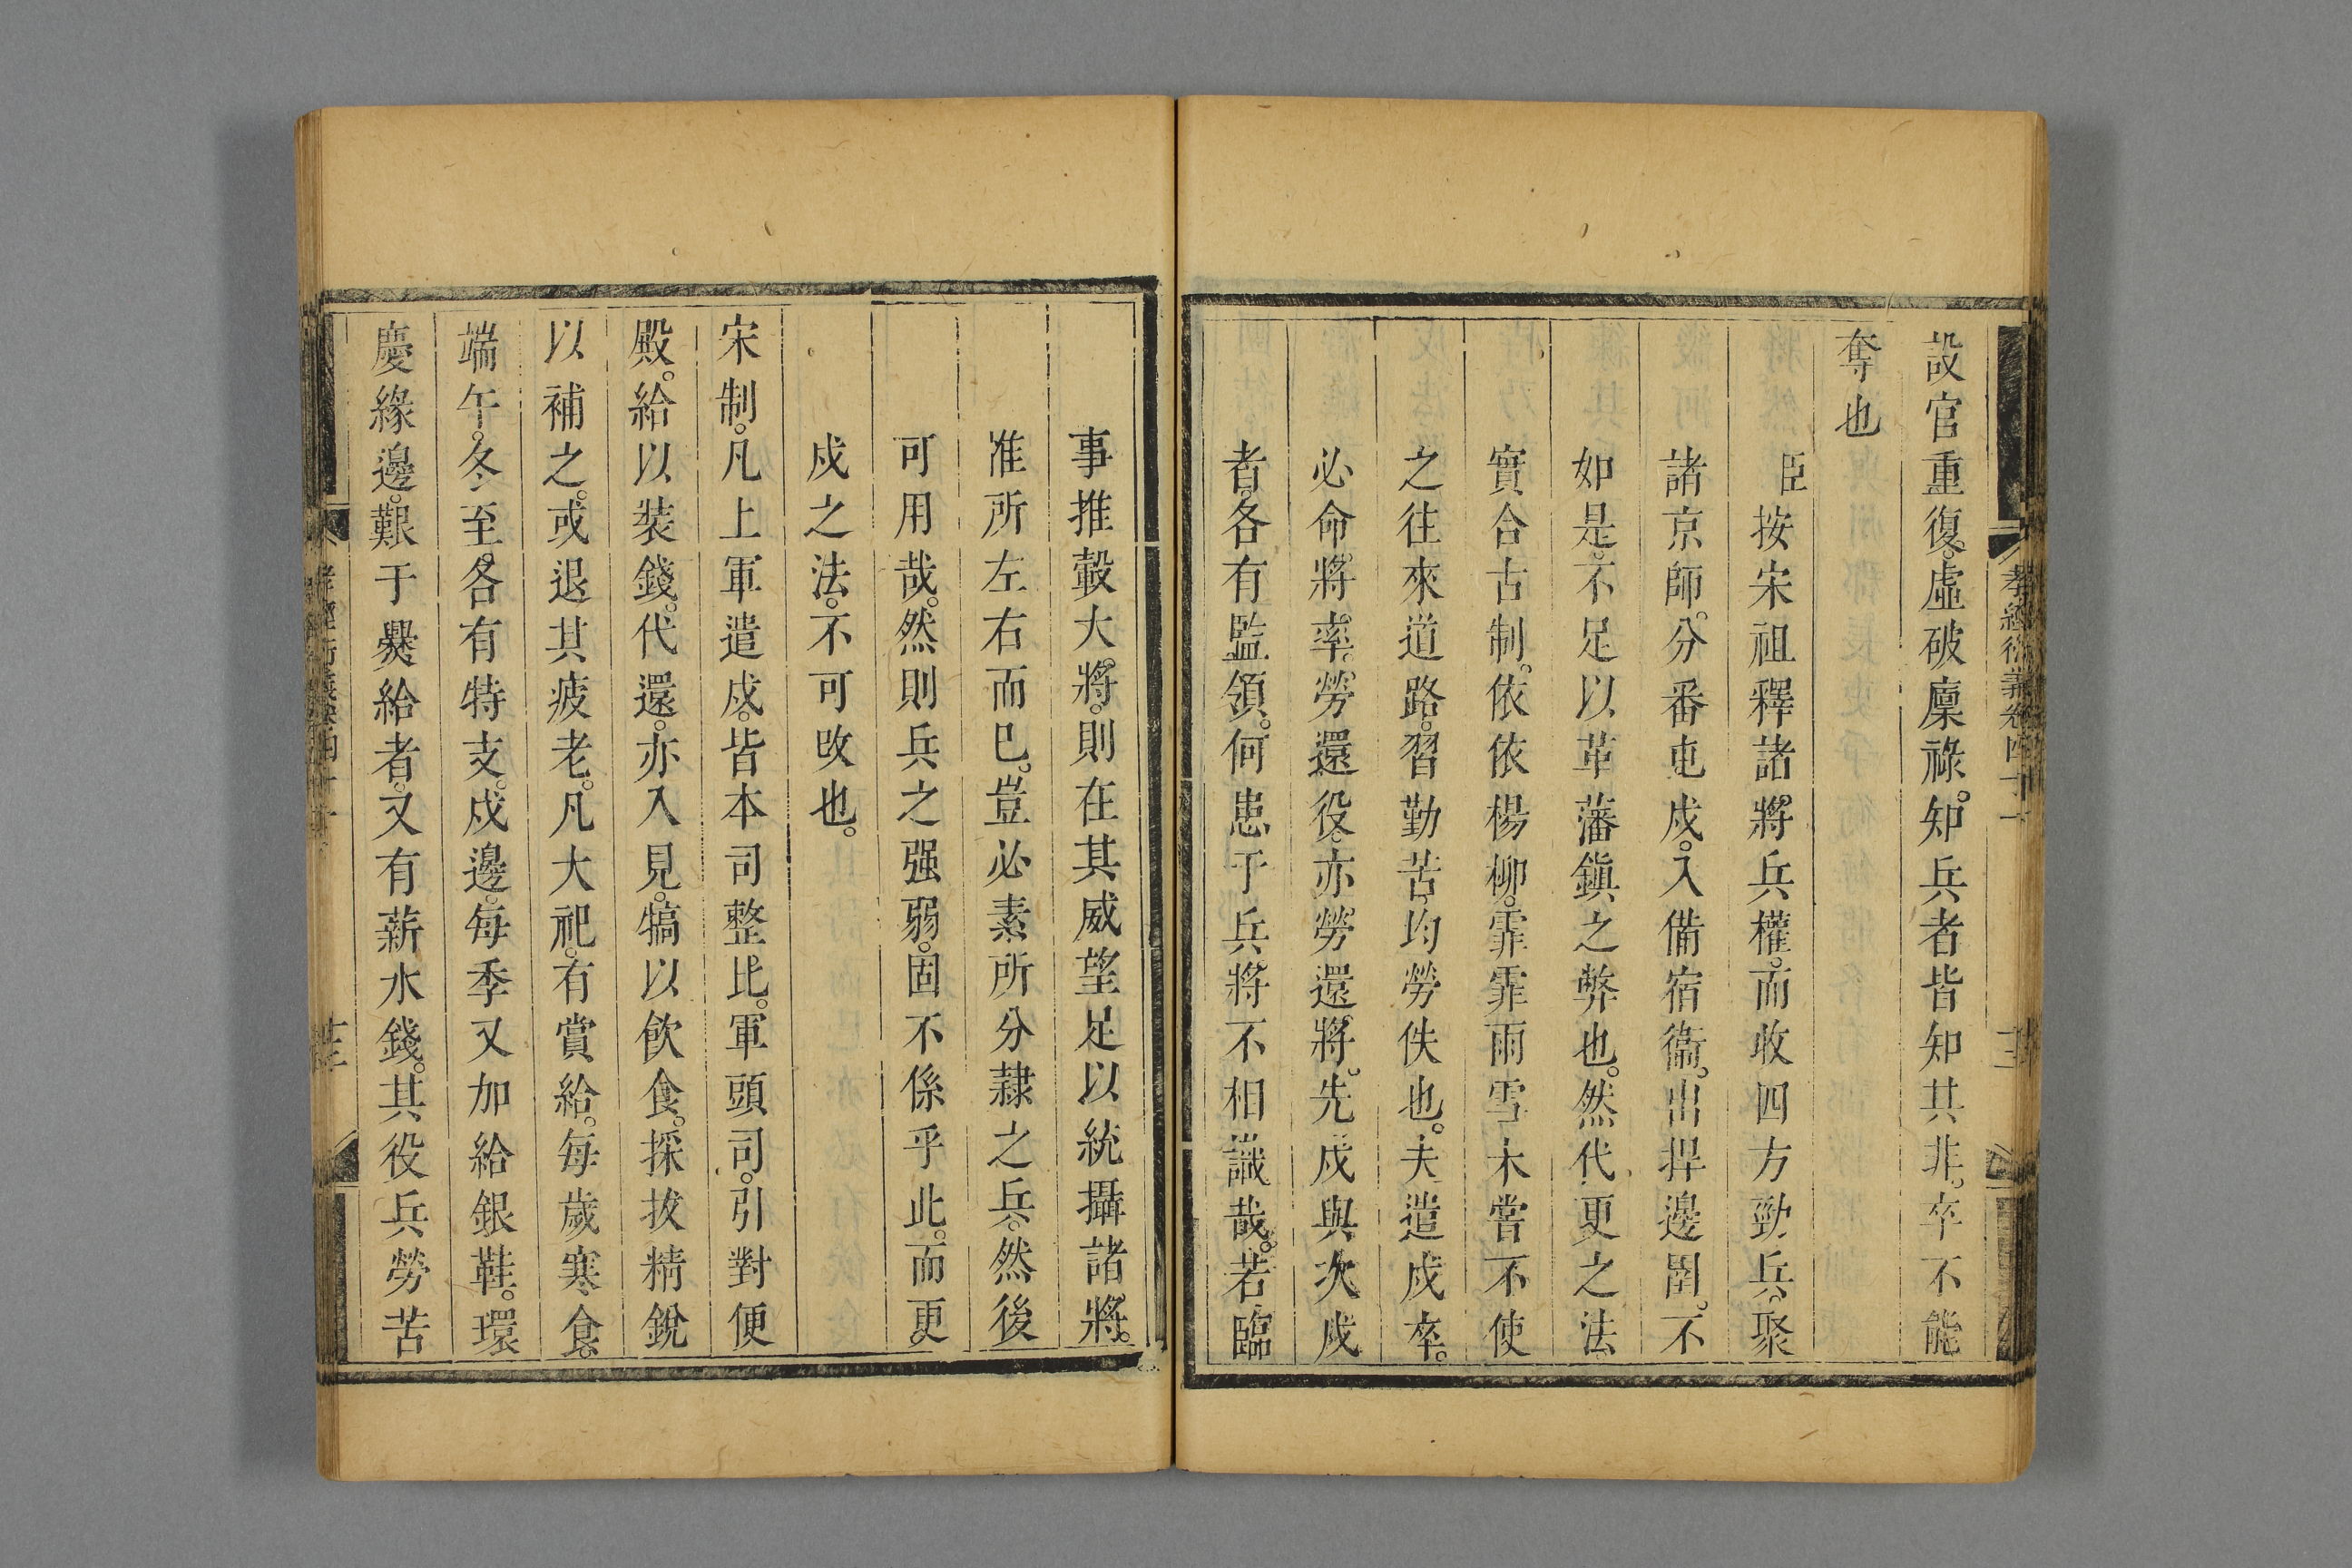 設官重復。虛破廩祿。知兵者皆知其非。卒不能
奪也
臣按宋祖釋諸將兵權。而收四方勁兵。聚
諸京師。分番屯戍。入備宿衞。出捍邊圉。不
如是。不足以革藩鎭之弊也。然代更之法。
實合古制。依依楊柳。霏霏雨雪。未嘗不使
之往來道路。習勤苦。均勞佚也。夫遣戍卒。
必命將率。勞還役。亦勞還將。先戍與次戍
者。各有監領。何患于兵將不相識哉。若臨
事推轂大將。則在其威望足以統攝諸將。
准所左右而已。豈必素所分隷之兵。然後
可用哉。然則兵之强弱。固不係乎此。而更
戍之法。不可改也。
宋制。凡上軍遣戍。皆本司整比。軍頭司。引對便
殿。給以裝錢。代還。亦入見。犒以飮食。採拔精銳
以補之。或退其疲老。凡大祀。有賞給。每歲寒食。
端午。冬至。各有特支。戍邊。每季又加給銀鞋。環
慶緣邊。艱于爨給者。又有薪水錢。其役兵勞苦
孝經衍義卷四十一